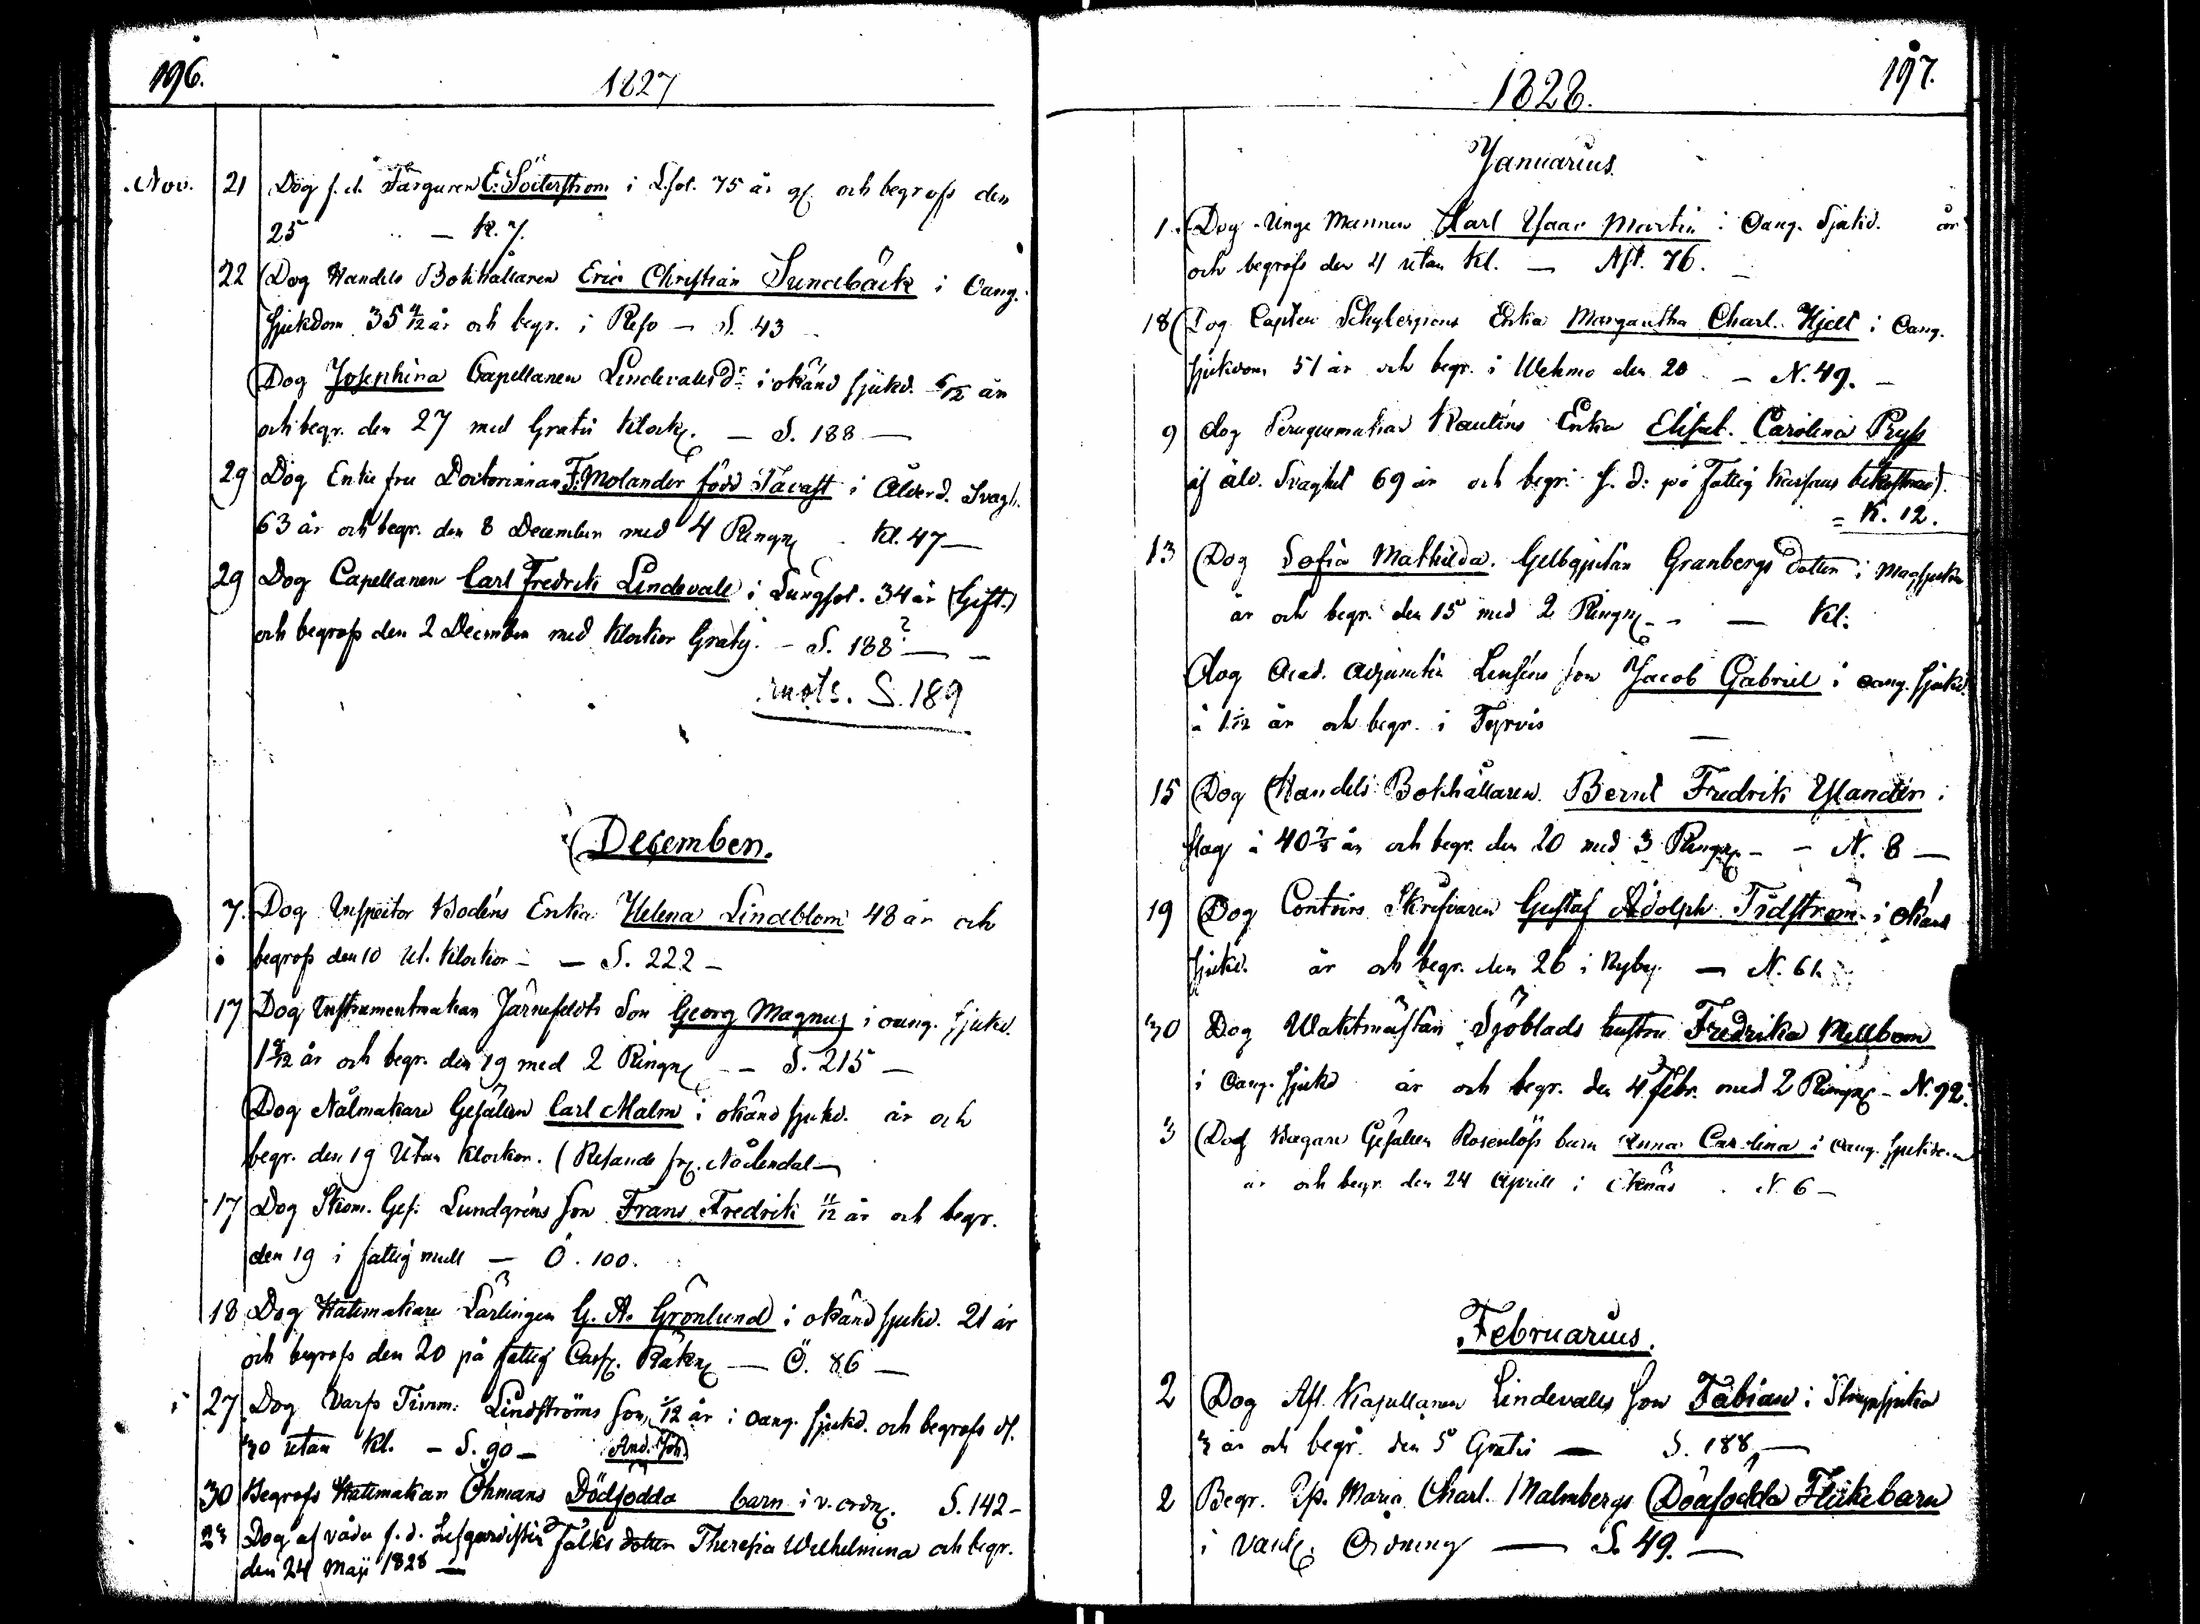 196.
1827
Nov. 21 Dog f.d. Färguren E. Söderstrom i Lsot. 75 år g. och begrofs den
25 — K. 7.
22 Dog Handels Bokhållaren Eric Christian Sundbäck i Oang.
sjukdom 35 4/12 år och begr. i Reso — S. 43
Dog Josephina Capellanen Lindevalls dr. i okänd sjukd. 6/12 år
och begr. den 27 med Gratis Klock. — S. 188 —
29 Dog Enke fru Doctorinnan F. Molander född Tavast i Ålderd. Svagh.
63 år och begr. den 8 December med 4 Ringn. Kl. 47 —
29 Dog Capellanen Carl Fredrik Lindevall i Lungsot. 34 år (Gift.)
och begrofs den 2 December med Klockor Gratis. — S. 188? —
S. 189
December.
7. Dog Inspector Bodéns Enka Helena Lindblom 48 år och
begrofs den 10 Ut. Klockor — — S. 222 —
17 Dog Instrumentmakar Järnefeldts Son Georg Magnus i oang. sjukd.
1 9/12 år och begr. den 19 med 2 Ringn. — — S. 215 —
Dog Nålmakare Gesällen Carl Malm i okänd sjukd. år och
begr. den 19 Utan Klockor. (Resande fr. Nådendal —
17 Dog Skom. Ges. Lundgréns son Frans Fredrik 11/12 år och begr.
den 19 i fattig mull — Ö. 100.
18 Dog Hattmakare Lärlingen G. A. Grönlund i okänd sjukd. 21 år
och begrofs den 20 på fattig Cass. Räkn. — Ö. 86 —
27 Dog Varfs Timm. Lindströms son, 1/12 år i oang. sjukd. och begrofs d.
30 utan Kl. — S. 90 — And. Joh.
30 Begrofs Hattmakar Öhmans Dödfödda barn i v. ordn. S. 142 —
23 Dog af våda f.d. Lifgardisten Falks dotter Theresia Wilhelmina och begr.
den 24 Maji 1828 —
197.
1828.
Januarius.
1. Dog Unge Mannen Karl Isaac Martin i Oang. Sjukd. år
och begrofs den 4 utan Kl. — Aft. 76. —
18 Dog Capten Schybergsons Enka Margaretha Charl. Hjelt i Oang.
sjukdom 51 år och begr. i Wehmo den 20 — N. 49. —
9 dog Peruquemakar Rautins Enka Elisab. Carolina Pryss
af åld. Svaghet 69 år och begr. f. d: på Fattig Kassans bekostnad.
= K. 12.
13 Dog Sofia Mathilda. Gelbgjutar Granbergs dotter i Magsjuka
år och begr. den 15 med 2 Ringn. — — Kl.
dog Acad. Adjuncten Lenséns son Jacob Gabriel i oang. sjukd.
å 1 1/12 år och begr. i Tyrvis —
15 Dog Handels Bokhållaren Bernt Fredrik Ylander i
slag å 40 7/8 år och begr. den 20 med 3 Ringn. — — N. 8 —
19 Dog Contoirs Skrifvaren Gustaf Adolph Tidström i okänd
sjukd. år och begr. den 26 i Nyby. — N. 61.
30 Dog Waktmästar Sjöblads hustru Fredrika Mellbom
i oang. sjukd år och begr. den 4 Febr. med 2 Ringn. — N. 92.
3 Dog Bagare Gesällen Rosenlöfs barn Anna Carolina i oang. sjukdom
år och begr. den 24 Aprill i N. 6 —
Februarius.
2 Dog Afl. Kapellanen Lindevalls son Fabian i Strupsjuka
3 år och begr. den 5 Gratis — S. 188, —
2 Begr. Pp. Maria Charl. Malmbergs Dödfödda Flickebarn
i vanl. Ordning — S. 49. —